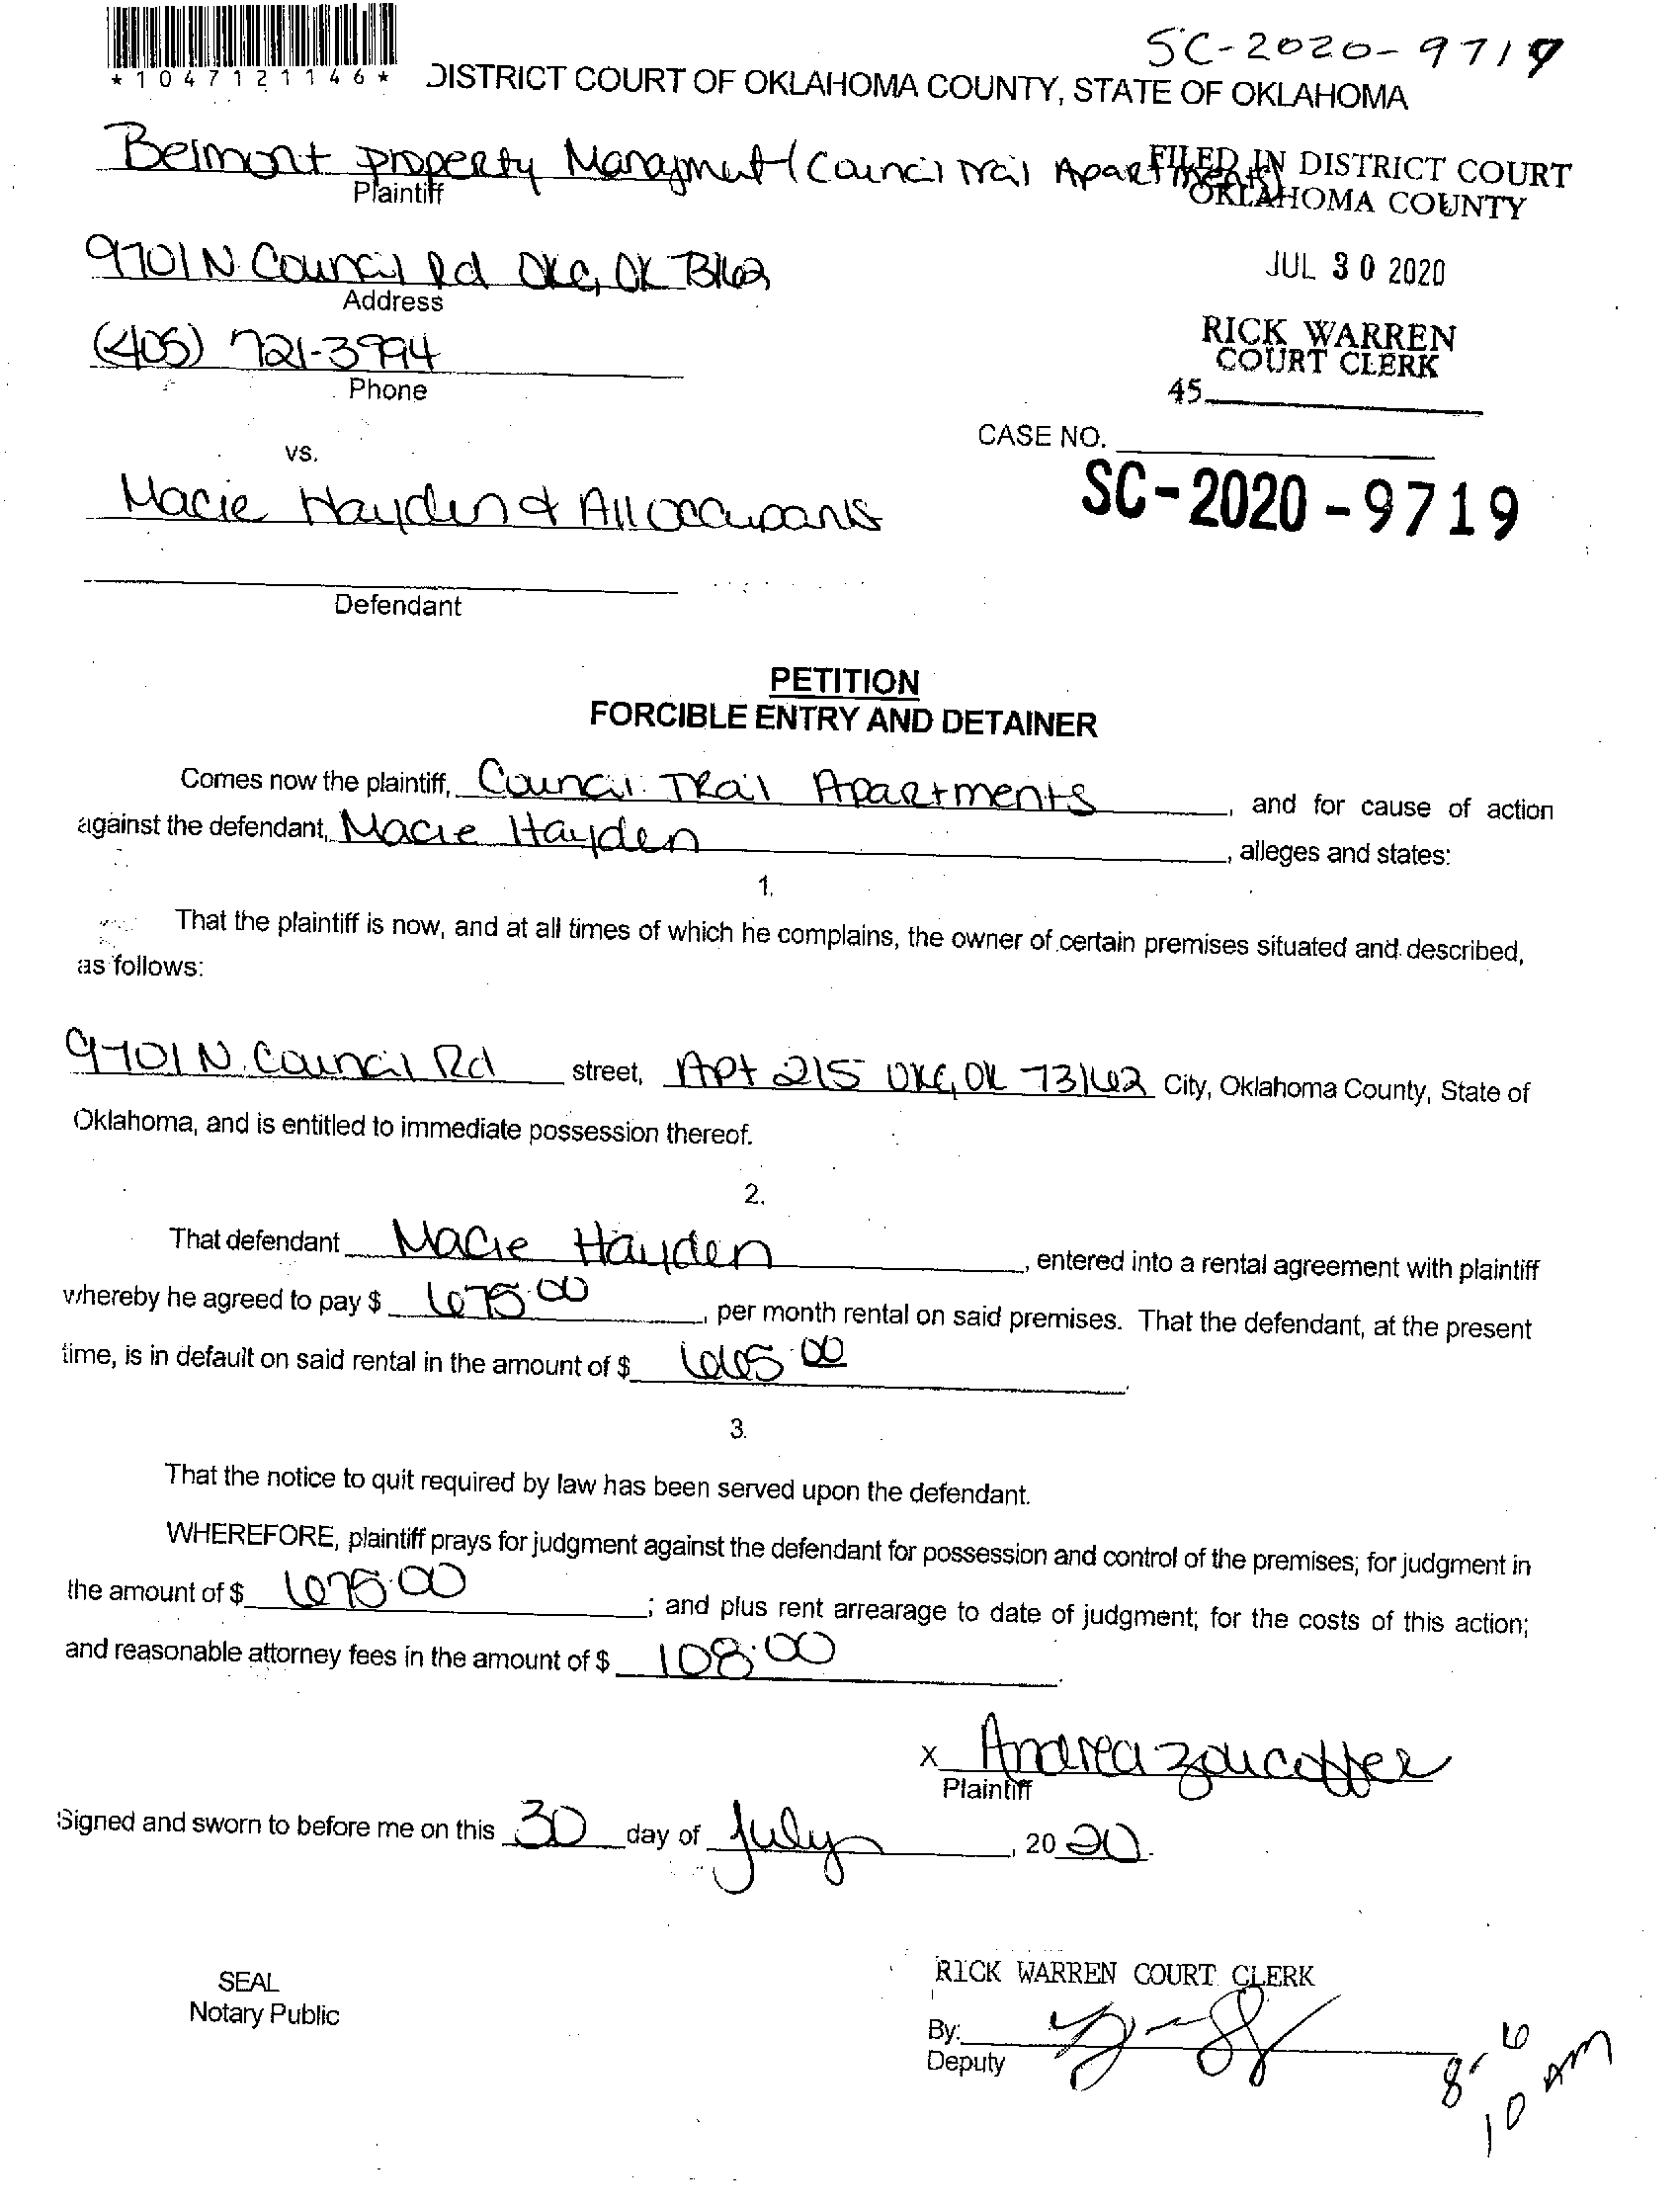 SC-2020-9719
*1047121146*
DISTRICT COURT OF OKLAHOMA COUNTY, STATE OF OKLAHOMA
Belmont Property Managment (Council Trail Apartments)
Plaintiff
FILED IN DISTRICT COURT
OKLAHOMA COUNTY
9701 N. Council Rd OKC, OK 73162
Address
JUL 30 2020
(405) 721-3994
Phone
RICK WARREN
COURT CLERK
45
CASE NO.
vs.
SC-2020-9719
Macie Hayden & All occupants
Defendant
PETITION
FORCIBLE ENTRY AND DETAINER
Comes now the plaintiff, Council Trail Apartments, and for cause of action
against the defendant, Macie Hayden, alleges and states:
1.
That the plaintiff is now, and at all times of which he complains, the owner of certain premises situated and described,
as follows:
9701 N. Council Rd street, Apt 215 OKC, OK 73162 City, Oklahoma County, State of
Oklahoma, and is entitled to immediate possession thereof.
2.
That defendant Macie Hayden, entered into a rental agreement with plaintiff
whereby he agreed to pay $ 675.00, per month rental on said premises. That the defendant, at the present
time, is in default on said rental in the amount of $ 665.00.
3.
That the notice to quit required by law has been served upon the defendant.
WHEREFORE, plaintiff prays for judgment against the defendant for possession and control of the premises; for judgment in
the amount of $ 675.00; and plus rent arrearage to date of judgment; for the costs of this action;
and reasonable attorney fees in the amount of $ 108.00.
X Andrea
Plaintiff
Signed and sworn to before me on this 30 day of July, 2020.
SEAL
Notary Public
RICK WARREN COURT CLERK
By:
Deputy
8-6
10 AM